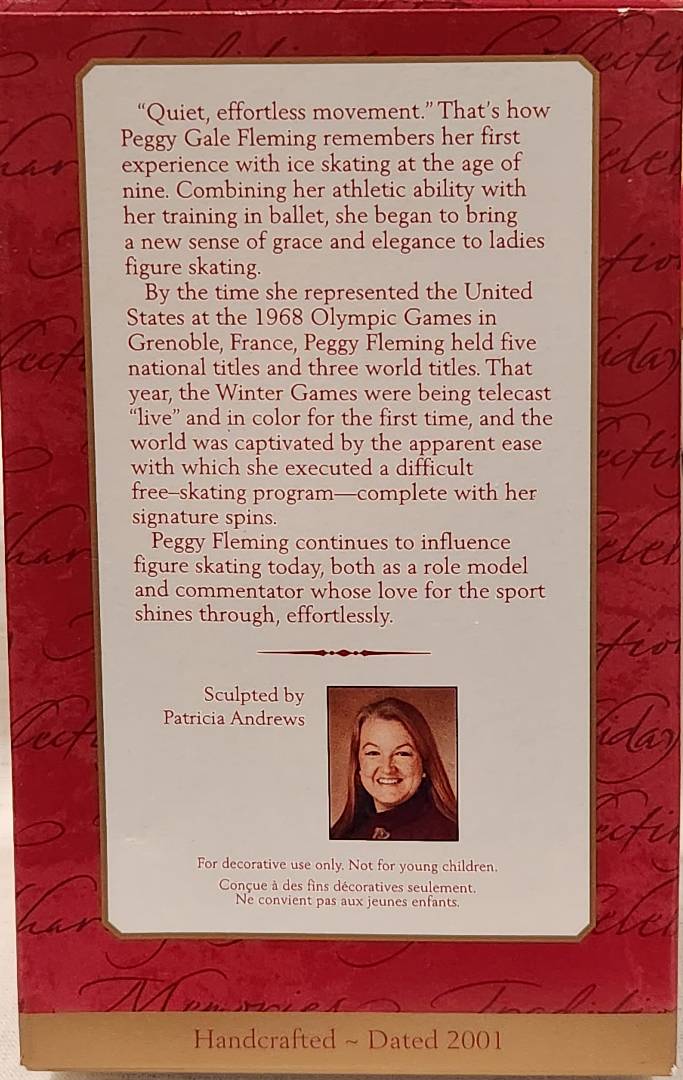 “Quiet, effortless movement.” That’s how
Peggy Gale Fleming remembers her first
experience with ice skating at the age of
nine. Combining her athletic ability with
her training in ballet, she began to bring
a new sense of grace and elegance to ladies
figure skating.
By the time she represented the United
States at the 1968 Olympic Games in
Grenoble, France, Peggy Fleming held five
national titles and three world titles. That
year, the Winter Games were being telecast
“live” and in color for the first time, and the
world was captivated by the apparent ease
with which she executed a difficult
free–skating program—complete with her
signature spins.
Peggy Fleming continues to influence
figure skating today, both as a role model
and commentator whose love for the sport
shines through, effortlessly.
Sculpted by
Patricia Andrews
For decorative use only. Not for young children.
Conçue à des fins décoratives seulement.
Ne convient pas aux jeunes enfants.
Memories
Handcrafted ~ Dated 2001